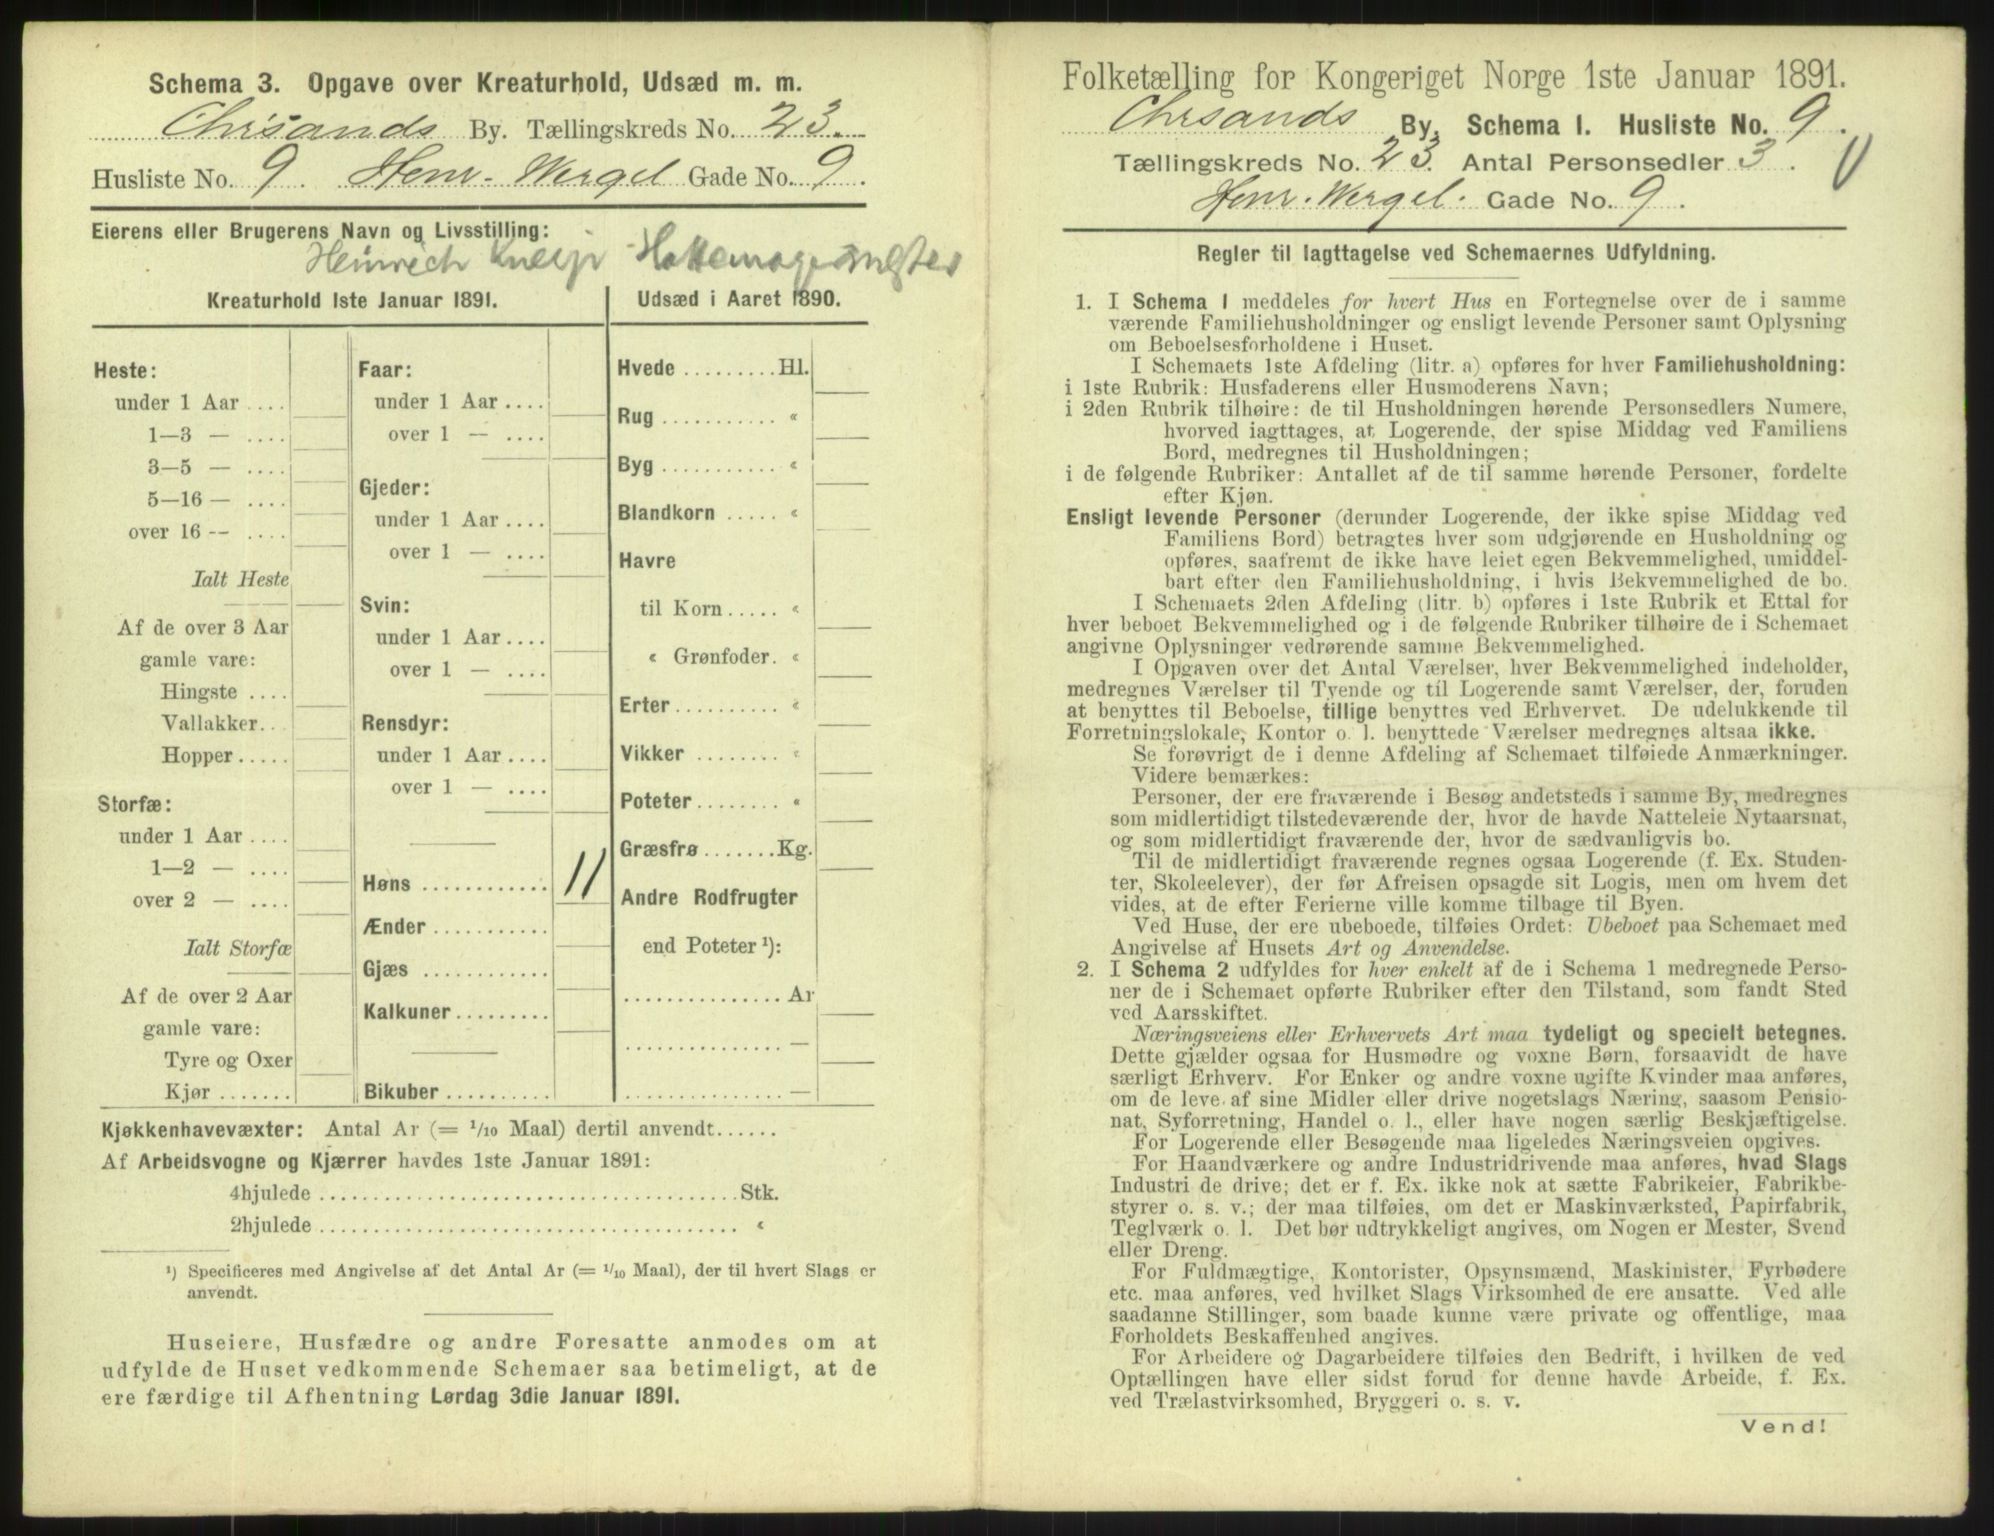 Schema 3. Opgave over Kreaturhold, Udsæd m. m.
Chrsands By. Tællingskreds No. 23.
Husliste No. 9. Henr. Wergel Gade No. 9.
Eierens eller Brugerens Navn og Livsstilling:
Heinrich
Kreaturhold 1ste Januar 1891.
Heste:
under 1 Aar ....
1—3 — ....
3—5 — ....
5—16 — ....
over 16 -- ....
Ialt Heste
Af de over 3 Aar
gamle vare:
Hingste ....
Vallakker...
Hopper.....
Storfæ:
under 1 Aar ....
1—2 — ....
over 2 — ....
Ialt Storfæ
Af de over 2 Aar
gamle vare:
Tyre og Oxer
Kjør .......
Faar:
under 1 Aar ....
over 1 — ....
Gjeder:
under 1 Aar ....
over 1 — ....
Svin:
under 1 Aar ....
over 1 — ....
Rensdyr:
under 1 Aar ....
over 1 — ....
Høns ............ 11
Ænder ...........
Gjæs ............
Kalkuner.........
Bikuber ..........
Udsæd i Aaret 1890.
Hvede .........Hl.
Rug ........... «
Byg ........... «
Blandkorn ..... «
Havre
til Korn..... «
« Grønfoder. «
Erter.......... «
Vikker ........ «
Poteter........ «
Græsfrø.......Kg.
Andre Rodfrugter
end Poteter ¹):
............... Ar
............... —
............... —
Kjøkkenhavevæxter: Antal Ar (= 1/10 Maal) dertil anvendt......
Af Arbeidsvogne og Kjærrer havdes 1ste Januar 1891:
4hjulede ......................................Stk.
2hjulede ...................................... «
¹) Specificeres med Angivelse af det Antal Ar (= 1/10 Maal), der til hvert Slags er
anvendt.
Huseiere, Husfædre og andre Foresatte anmodes om at
udfylde de Huset vedkommende Schemaer saa betimeligt, at de
ere færdige til Afhentning Lørdag 3die Januar 1891.
Folketælling for Kongeriget Norge 1ste Januar 1891.
Chrsands By. Schema I. Husliste No. 9.
Tællingskreds No. 23. Antal Personsedler 3.
Henr. Wergel. Gade No. 9.
Regler til Iagttagelse ved Schemaernes Udfyldning.
1. I Schema I meddeles for hvert Hus en Fortegnelse over de i samme
værende Familiehusholdninger og ensligt levende Personer samt Oplysning
om Beboelsesforholdene i Huset.
I Schemaets 1ste Afdeling (litr. a) opføres for hver Familiehusholdning:
i 1ste Rubrik: Husfaderens eller Husmoderens Navn;
i 2den Rubrik tilhøire: de til Husholdningen hørende Personsedlers Numere,
hvorved iagttages, at Logerende, der spise Middag ved Familiens
Bord, medregnes til Husholdningen;
i de følgende Rubriker: Antallet af de til samme hørende Personer, fordelte
efter Kjøn.
Ensligt levende Personer (derunder Logerende, der ikke spise Middag ved
Familiens Bord) betragtes hver som udgjørende en Husholdning og
opføres, saafremt de ikke have leiet egen Bekvemmelighed, umiddel-
bart efter den Familiehusholdning, i hvis Bekvemmelighed de bo.
I Schemaets 2den Afdeling (litr. b) opføres i 1ste Rubrik et Ettal for
hver beboet Bekvemmelighed og i de følgende Rubriker tilhøire de i Schemaet
angivne Oplysninger vedrørende samme Bekvemmelighed.
I Opgaven over det Antal Værelser, hver Bekvemmelighed indeholder,
medregnes Værelser til Tyende og til Logerende samt Værelser, der, foruden
at benyttes til Beboelse, tillige benyttes ved Erhvervet. De udelukkende til
Forretningslokale, Kontor o. l. benyttede Værelser medregnes altsaa ikke.
Se forøvrigt de i denne Afdeling af Schemaet tilføiede Anmærkninger.
Videre bemærkes:
Personer, der ere fraværende i Besøg andetsteds i samme By, medregnes
som midlertidigt tilstedeværende der, hvor de havde Natteleie Nytaarsnat,
og som midlertidigt fraværende der, hvor de sædvanligvis bo.
Til de midlertidigt fraværende regnes ogsaa Logerende (f. Ex. Studen-
ter, Skoleelever), der før Afreisen opsagde sit Logis, men om hvem det
vides, at de efter Ferierne ville komme tilbage til Byen.
Ved Huse, der ere ubeboede, tilføies Ordet: Ubeboet paa Schemaet med
Angivelse af Husets Art og Anvendelse.
2. I Schema 2 udfyldes for hver enkelt af de i Schema 1 medregnede Perso-
ner de i Schemaet opførte Rubriker efter den Tilstand, som fandt Sted
ved Aarsskiftet.
Næringsveiens eller Erhvervets Art maa tydeligt og specielt betegnes.
Dette gjælder ogsaa for Husmødre og voxne Børn, forsaavidt de have
særligt Erhverv. For Enker og andre voxne ugifte Kvinder maa anføres,
om de leve af sine Midler eller drive nogetslags Næring, saasom Pensio-
nat, Syforretning, Handel o. l., eller have nogen særlig Beskjæftigelse.
For Logerende eller Besøgende maa ligeledes Næringsveien opgives.
For Haandværkere og andre Industridrivende maa anføres, hvad Slags
Industri de drive; det er f. Ex. ikke nok at sætte Fabrikeier, Fabrikbe-
styrer o. s. v.; der maa tilføies, om det er Maskinværksted, Papirfabrik,
Teglværk o. l. Det bør udtrykkeligt angives, om Nogen er Mester, Svend
eller Dreng.
For Fuldmægtige, Kontorister, Opsynsmænd, Maskinister, Fyrbødere
etc. maa anføres, ved hvilket Slags Virksomhed de ere ansatte. Ved alle
saadanne Stillinger, som baade kunne være private og offentlige, maa
Forholdets Beskaffenhed angives.
For Arbeidere og Dagarbeidere tilføies den Bedrift, i hvilken de ved
Optællingen have eller sidst forud for denne havde Arbeide, f. Ex.
ved Trælastvirksomhed, Bryggeri o. s. v.
Vend!